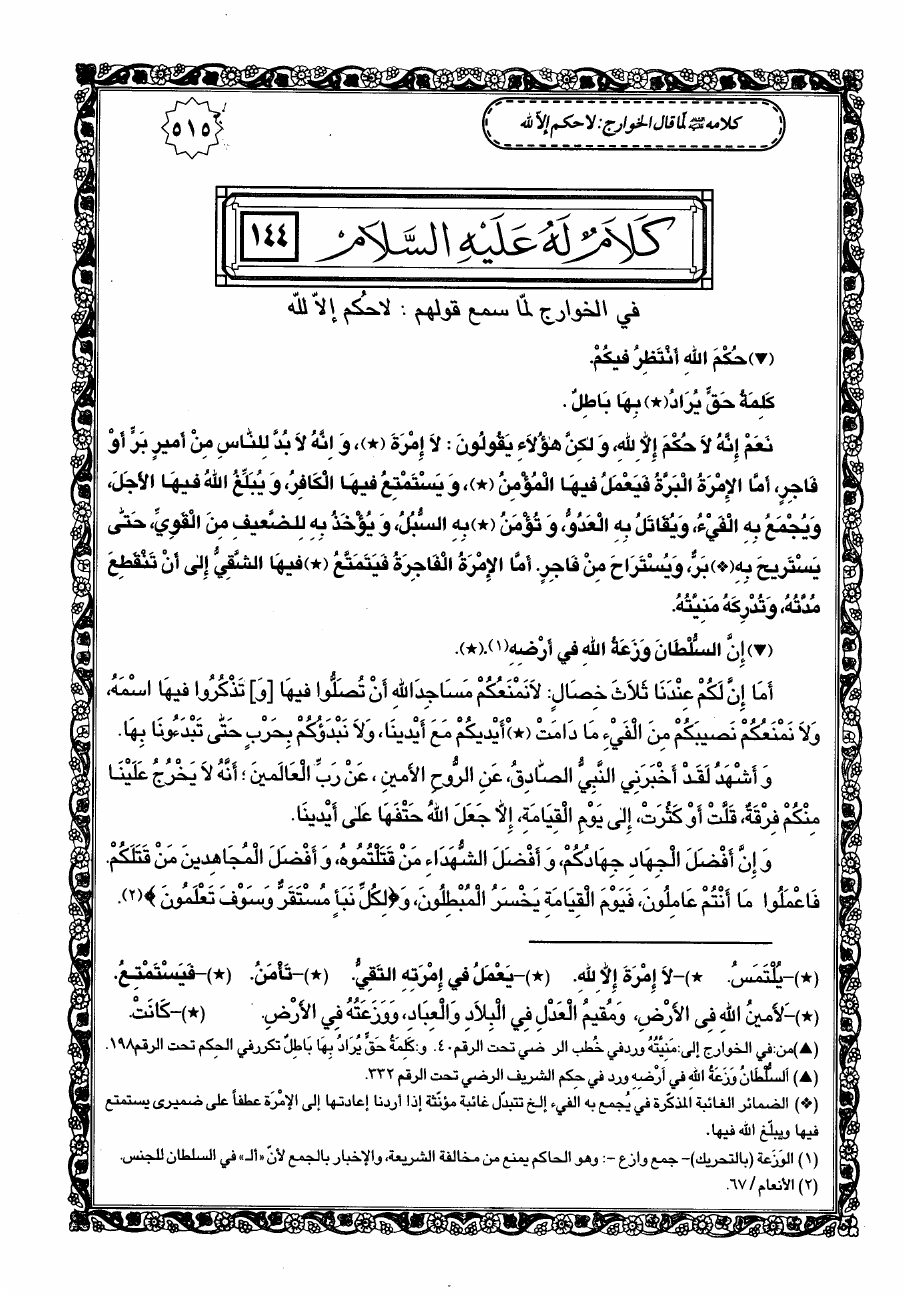 كلامه عليه السلام لمّا قال الخوارج: لا حكم إلاّ لله
ج
٥١٥
كَلاَمٌ لَهُ عَلَيْهِ السَّلاَمُ
١٤٤
في الخوارج لمّا سمع قولهم : لاحُكم إلاّ للّه
(▼)حُكْمَ اللهِ أَنْتَظِرُ فيكُمْ.
كَلِمَةُ حَقٍّ يُرَادُ(★) بِهَا بَاطِلٌ .
نَعَمْ إِنَّهُ لاَ حُكْمَ إِلاَّ لِلهِ، وَ لكِنَّ هؤُلاَءِ يَقُولُونَ : لاَ إِمْرَةَ (★)، وَ إِنَّهُ لاَ بُدَّ لِلنَّاسِ مِنْ أَميرٍ بَرٍّ أَوْ
فَاجِرٍ، أَمَّا الإِمْرَةُ الْبَرَّةُ فَيَعْمَلُ فيهَا الْمُؤْمِنُ (★)، وَ يَسْتَمْتِعُ فيهَا الْكَافِرُ، وَ يُبَلِّغُ اللهُ فيهَا الأَجَلَ،
وَيُجْمَعُ بِهِ الْفَيْءُ، وَيُقَاتَلُ بِهِ الْعَدُوُّ، وَ تُؤْمَنُ (★)بِهِ السُّبُلُ، وَ يُؤْخَذُ بِهِ لِلضَّعيفِ مِنَ الْقَوِيِّ، حَتّى
يَسْتَريحَ بِهِ(❖)بَرٌّ، وَيُسْتَرَاحَ مِنْ فَاجِرٍ. أَمَّا الإِمْرَةُ الْفَاجِرَةُ فَيَتَمَتَّعُ (★)فيهَا الشَّقِيُّ إِلى أَنْ تَنْقَطِعَ
مُدَّتُهُ، وَ تُدْرِكَهُ مَنِيَّتُهُ.
(▼)إِنَّ السُّلْطَانَ وَزَعَةُ اللهِ في أَرْضِهِ(١).(★).
أَمَا إِنَّ لَكُمْ عِنْدَنَا ثَلاَثَ خِصَالٍ: لاَنَمْنَعُكُمْ مَسَاجِدَاللهِ أَنْ تُصَلُّوا فيهَا [وَ] تَذْكُرُوا فيهَا اسْمَهُ،
وَلاَ نَمْنَعُكُمْ نَصيبَكُمْ مِنَ الْفَيْءِ مَا دَامَتْ (★)أَيْديكُمْ مَعَ أَيْدينَا، وَلاَ نَبْدَؤُكُمْ بِحَرْبٍ حَتّى تَبْدَءُونَا بِهَا.
وَ أَشْهَدُ لَقَدْ أَخْبَرَنِي النَّبِيُّ الصَّادِقُ، عَنِ الرُّوحِ الأَمينِ ، عَنْ رَبِّ الْعَالَمينَ ؛ أَنَّهُ لاَ يَخْرُجُ عَلَيْنَا
مِنْكُمْ فِرْقَةٌ، قَلَّتْ أَوْ كَثُرَتْ، إِلى يَوْمِ الْقِيَامَةِ، إِلاَّ جَعَلَ اللهُ حَتْفَهَا عَلى أَيْدينَا.
وَ إِنَّ أَفْضَلَ الْجِهَادِ جِهَادُكُمْ، وَ أَفْضَلَ الشُّهَدَاءِ مَنْ قَتَلْتُمُوهُ، وَ أَفْضَلَ الْمُجَاهِدينَ مَنْ قَتَلَكُمْ.
فَاعْمَلُوا مَا أَنْتُمْ عَامِلُونَ، فَيَوْمَ الْقِيَامَةِ يَخْسَرُ الْمُبْطِلُونَ، وَ﴿لِكُلِّ نَبَأٍ مُسْتَقَرٌّ وَسَوْفَ تَعْلَمُونَ ﴾(٢).
(★)–يُلْتَمَسُ. ★)–لاَ إِمْرَةَ إِلاَّ لِلهِ. (★)–يَعْمَلُ في إِمْرَتِهِ التَّقِيُّ. (★)–تَأْمَنُ. (★)–فَيَسْتَمْتِعُ.
(★)–لأَمينُ اللهِ فِى الأَرْضِ، وَمُقيمُ الْعَدْلِ فِي الْبِلاَدِ وَالْعِبَادِ، وَوَزَعَتُهُ فِي الأَرْضِ. (★)–كَانَتْ.
(▲)من:في الخوارج إلى:مَنِيَّتُهُ وردفي خُطب الرضي تحت الرقم٤٠. و:كَلِمَةُ حَقٍّ يُرَادُ بِهَا بَاطِلٌ تكررفي الحكم تحت الرقم١٩٨.
(▲) اَلسُّلْطَانُ وَزَعَةُ اللهِ في أَرْضِهِ ورد في حِكم الشريف الرضي تحت الرقم ٣٣٢.
(❖) الضمائر الغائبة المذكّرة في يُجمع به الفيء إلخ تتبدّل غائبة مؤنّثة إذا أردنا إعادتها إلى الإمْرَة عطفاً على ضميرى يستمتع
فيها ويبلّغ الله فيها.
(١) الوَزَعة (بالتحريك)– جمع وازع –: وهو الحاكم يمنع من مخالفة الشريعة، والإخبار بالجمع لأنّ «الـ» في السلطان للجنس.
(٢) الأنعام/ ٦٧.